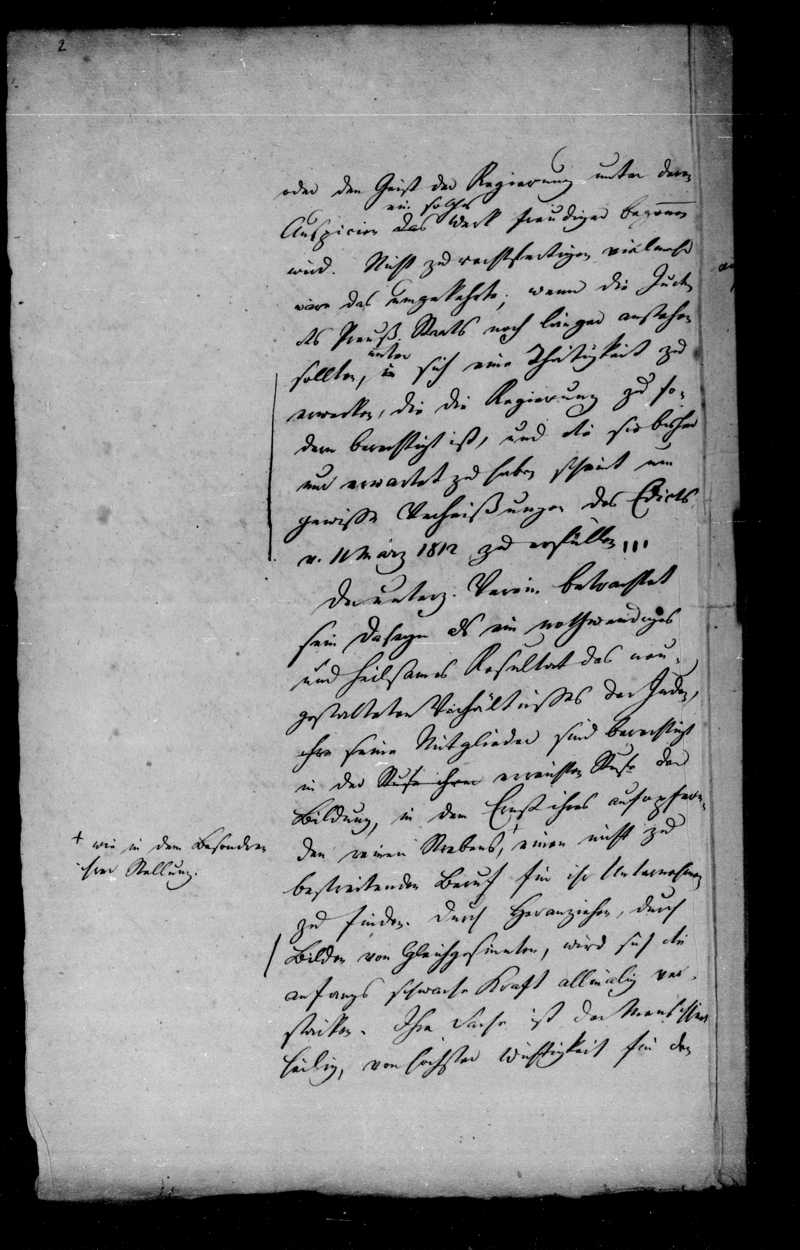 2
oder den Geist der Regierung unter deren
ein solches
Auspicien das Werk freudiger begonnen
wird. Nicht zu rechtfertigen vielmehr
wäre das umgekehrte; wenn die Juden
des Preuß. Staats noch länger anstehen
unter
sollten, in sich eine Thätigkeit zu
erwecken, die die Regierung zu fo-
dern berechtigt ist, und die sie bisher
nur erwartet zu haben scheint um
gewisse Verheißungen des Edicts
v. 11 März 1812 zu erfüllen
Der unterz. Verein betrachtet
sein Daseyn als ein nothwendiges
und heilsames Resultat des neu-
gestalteten Verhältnisses der Juden,
seine Mitglieder sind berechtigt
in der Stufe ihrer erreichten Stufe der
Bildung, in dem Ernst ihres aufopfern-
den reinen Strebens, + einen nicht zu
+ wie in dem Besonderen
ihrer Stellung.
bestreitenden Beruf für ihr Unternehmen
zu finden. Durch Heranziehen, durch
Bilden von Gleichgesinnten, wird sich die
anfangs schwache Kraft allmälig ver-
stärken. Ihre Sache ist der Menschheit
heilig, von höchster Wichtigkeit für den